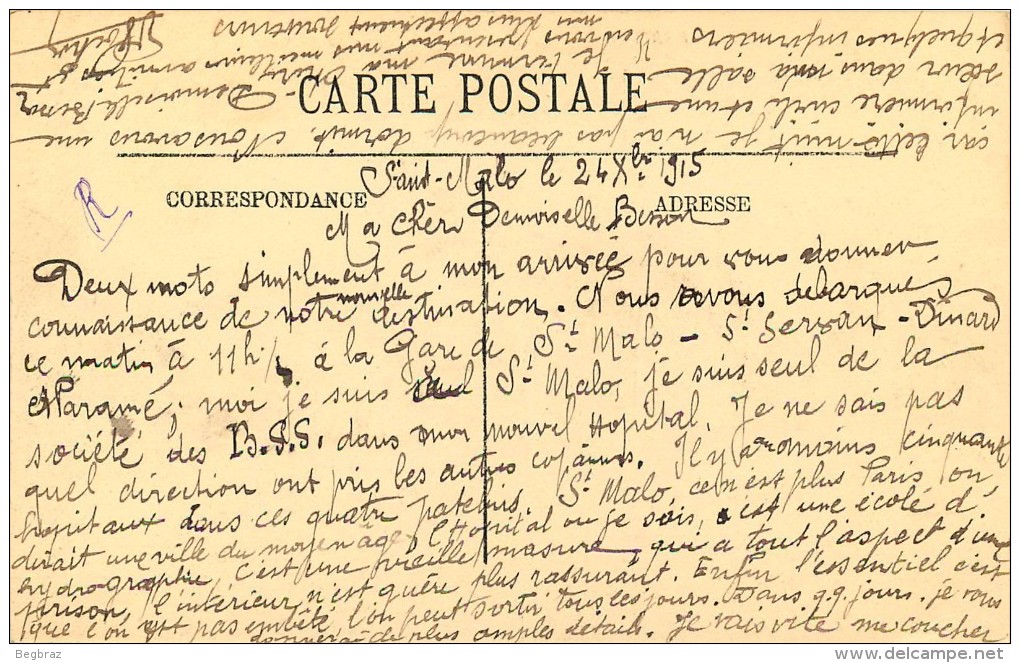 CARTE POSTALE
CORRESPONDANCE
ADRESSE
R
Saint-Malo le 24 Xbre 1915
Ma Chère Demoiselle Besson
Deux mots simplement à mon arrivée pour vous donner
connaissance de notre nouvelle destination. Nous avons débarqués
ce matin à 11h½ à la Gare de St Malo - St Servan - Dinard
Paramé; moi je suis seul St Malo, je suis seul de la
société des B.S.S. dans mon nouvel Hopital. Je ne sais pas
quel direction ont pris les autres copains. Il y a au moins cinquante
hopitaux dans ces quatre patelins. St Malo, ce n'est plus Paris on
dirait une ville du moyen âge, l'Hopital ou je suis, c'est une école d'
hydrographie, c'est une vieille masure, qui a tout l'aspect d'une
prison, l'intérieur n'est guère plus rassurant. Enfin l'essentiel c'est
que l'on est pas embêté, l'on peut sortir tous les jours. Dans q.q. jours je vous
donnerai de plus amples détails. Je vais vite me coucher
car cette nuit je n'ai pas beaucoup dormit. Nous avons une
infirmière civile et une
sœur dans ma salle
et quelques infirmiers
Je termine ma Chère Demoiselle Besson
en vous présentant mes meilleurs amitiés et
mon plus affectueux souvenirs
Begbraz
delcampe.net